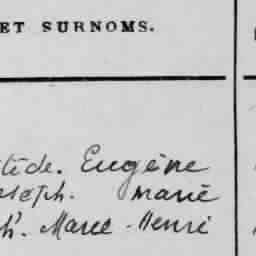 ET SURNOMS.
tide. Eugène
oseph. Marie
h. Marie-Henri